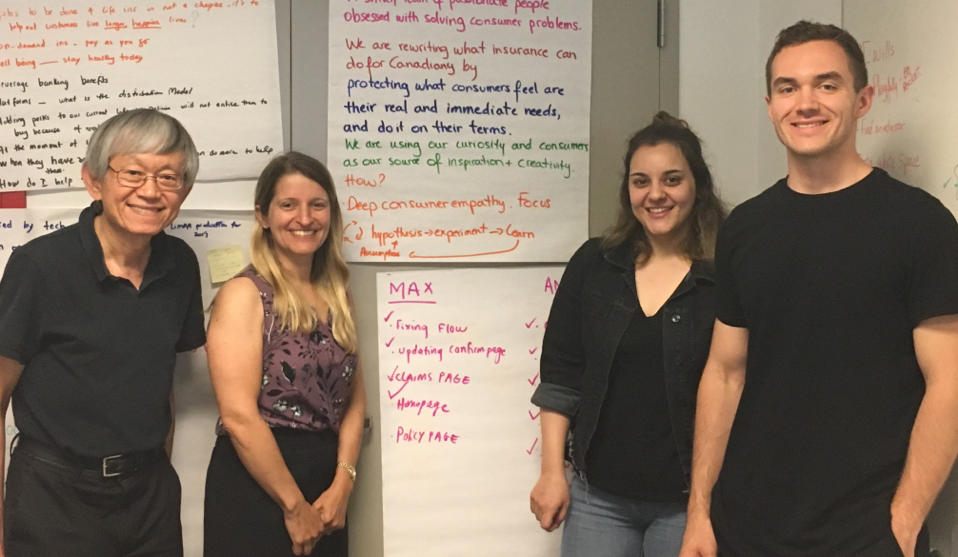 jobs to be done 4 life ins is not a cheque. it's to
help out customers live longer happier lives?
on-demand ins - pay as you go
well being — stay healthy today
everage banking benefits
platforms - what is the distribution Model
Adding perks to our current will not entice them to
buy because of
As the moment of
when they have can do more to help
them.
How do I help
ed by tech
production for
2017
team of passionate people
obsessed with solving consumer problems.
We are rewriting what insurance can
do for Canadians by
protecting what consumers feel are
their real and immediate needs,
and do it on their terms.
We are using our curiosity and consumers
as our source of inspiration + creativity.
How?
· Deep consumer empathy. Focus
hypothesis → experiment → Learn
Assumptions
MAX
· Fixing Flow
· updating confirm page
CLAIMS PAGE
· Homepage
· POLICY PAGE
AN
Wills